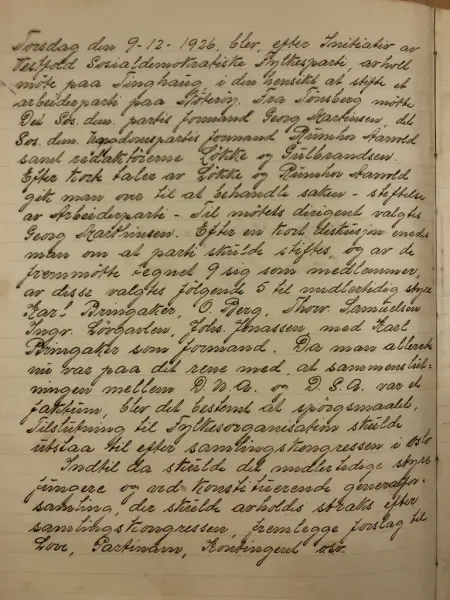 Torsdag den 9-12-1926, blev, efter Initiativ av
Vestfold Socialdemokratiske Fylkesparti, avholdt
møte paa Tinghaug, i den hensikt at stifte et
arbeiderparti paa Nøterøy. Fra Tønsberg møtte
Det Sos. dem. partis formand Georg Martinsen, det
Sos. dem. Ungdomspartis formand Arnold
samt redaktørerne Løkke og Gulbrandsen.
Efter kort taler av Løkke og Arnold
gik man over til at behandle saken - stiftelse
av Arbeiderparti - Til møtets dirigent valgtes
Georg Marthinsen. Efter en kort diskusjon enedes
man om at parti skulde stiftes, og av de
fremmøtte tegnet 9 sig som medlemmer,
av disse valgtes følgende 5 til midlertidig styre
Karl Bringaker, O. Berg, Thorv. Samuelsen
Ingv. Lövgavlen, Johs. Jonassen, med Karl
Bringaker som formand. Da man allerede
nu var paa det rene med, at sammenslut-
ningen mellem D.N.A. og D.S.A. var et
faktum, blev det bestemt at spörgsmaalet,
Tilslutning til Fylkesorganisation skulde
utstaa til efter samlingskongressen i Oslo
Indtil da skulde det midlertidige styre
fungere og ved konstituerende generalfor-
samling, der skulde avholdes straks efter
samlingskongressen, fremlegge forslag til
Love, Partinavn, Kontingent osv.